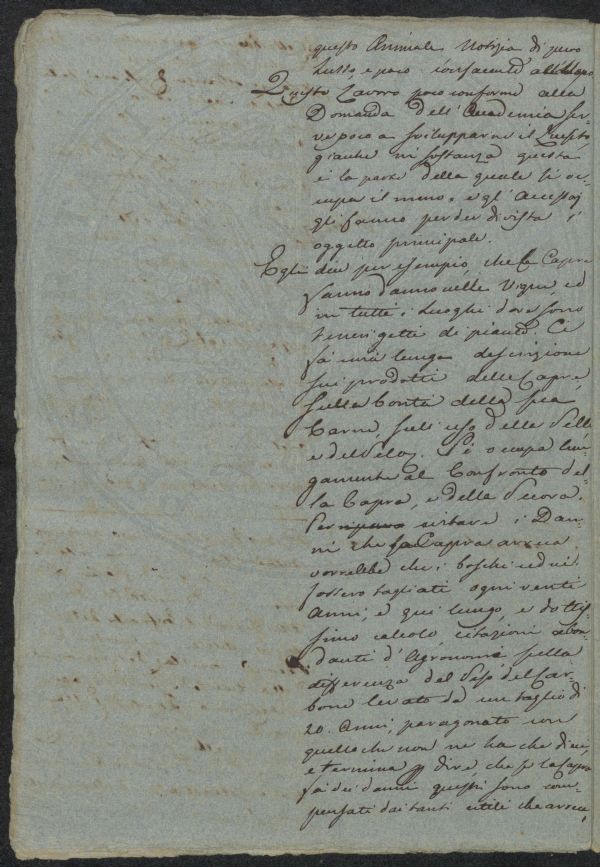 questo Animale. Notizia di puro
lusso e poco confacente allo scopo
Questo Lavoro poco conforme alla
Domanda dell' Academia ser-
ve poco a svilupparne il Quesito,
giacchè in sostanza questa
è la parte della quale si oc-
cupa il meno, e gl' Accessorj
gli fanno perder di vista l'
oggetto principale.
Egli dice per esempio, che le Capre
fanno danno nelle Vigne, ed
in tutti i Luoghi dove sono
teneri getti di piante. Ci
fa una lunga descrizione
sui prodotti delle Capre,
sulla bontà della sua
Carne, sull' uso della Pelle
e del Pelo. Si occupa lun-
gamente al Confronto del-
la Capra, e della Pecora.
Per evitare i Dan-
ni che la Capra arreca
vorrebbe che i boschi cedui
fossero tagliati ogni venti
Anni, e qui lungo, e dottis-
simo calcolo, citazioni abon-
danti d' Agronomi sulla
differenza del Peso del Car-
bone levato da un taglio di
20. Anni, paragonato con
quello che non ne ha che dieci,
e termina p dire, che se la Capra
fa dei danni questi sono com-
pensati dai tanti utili che arreca,